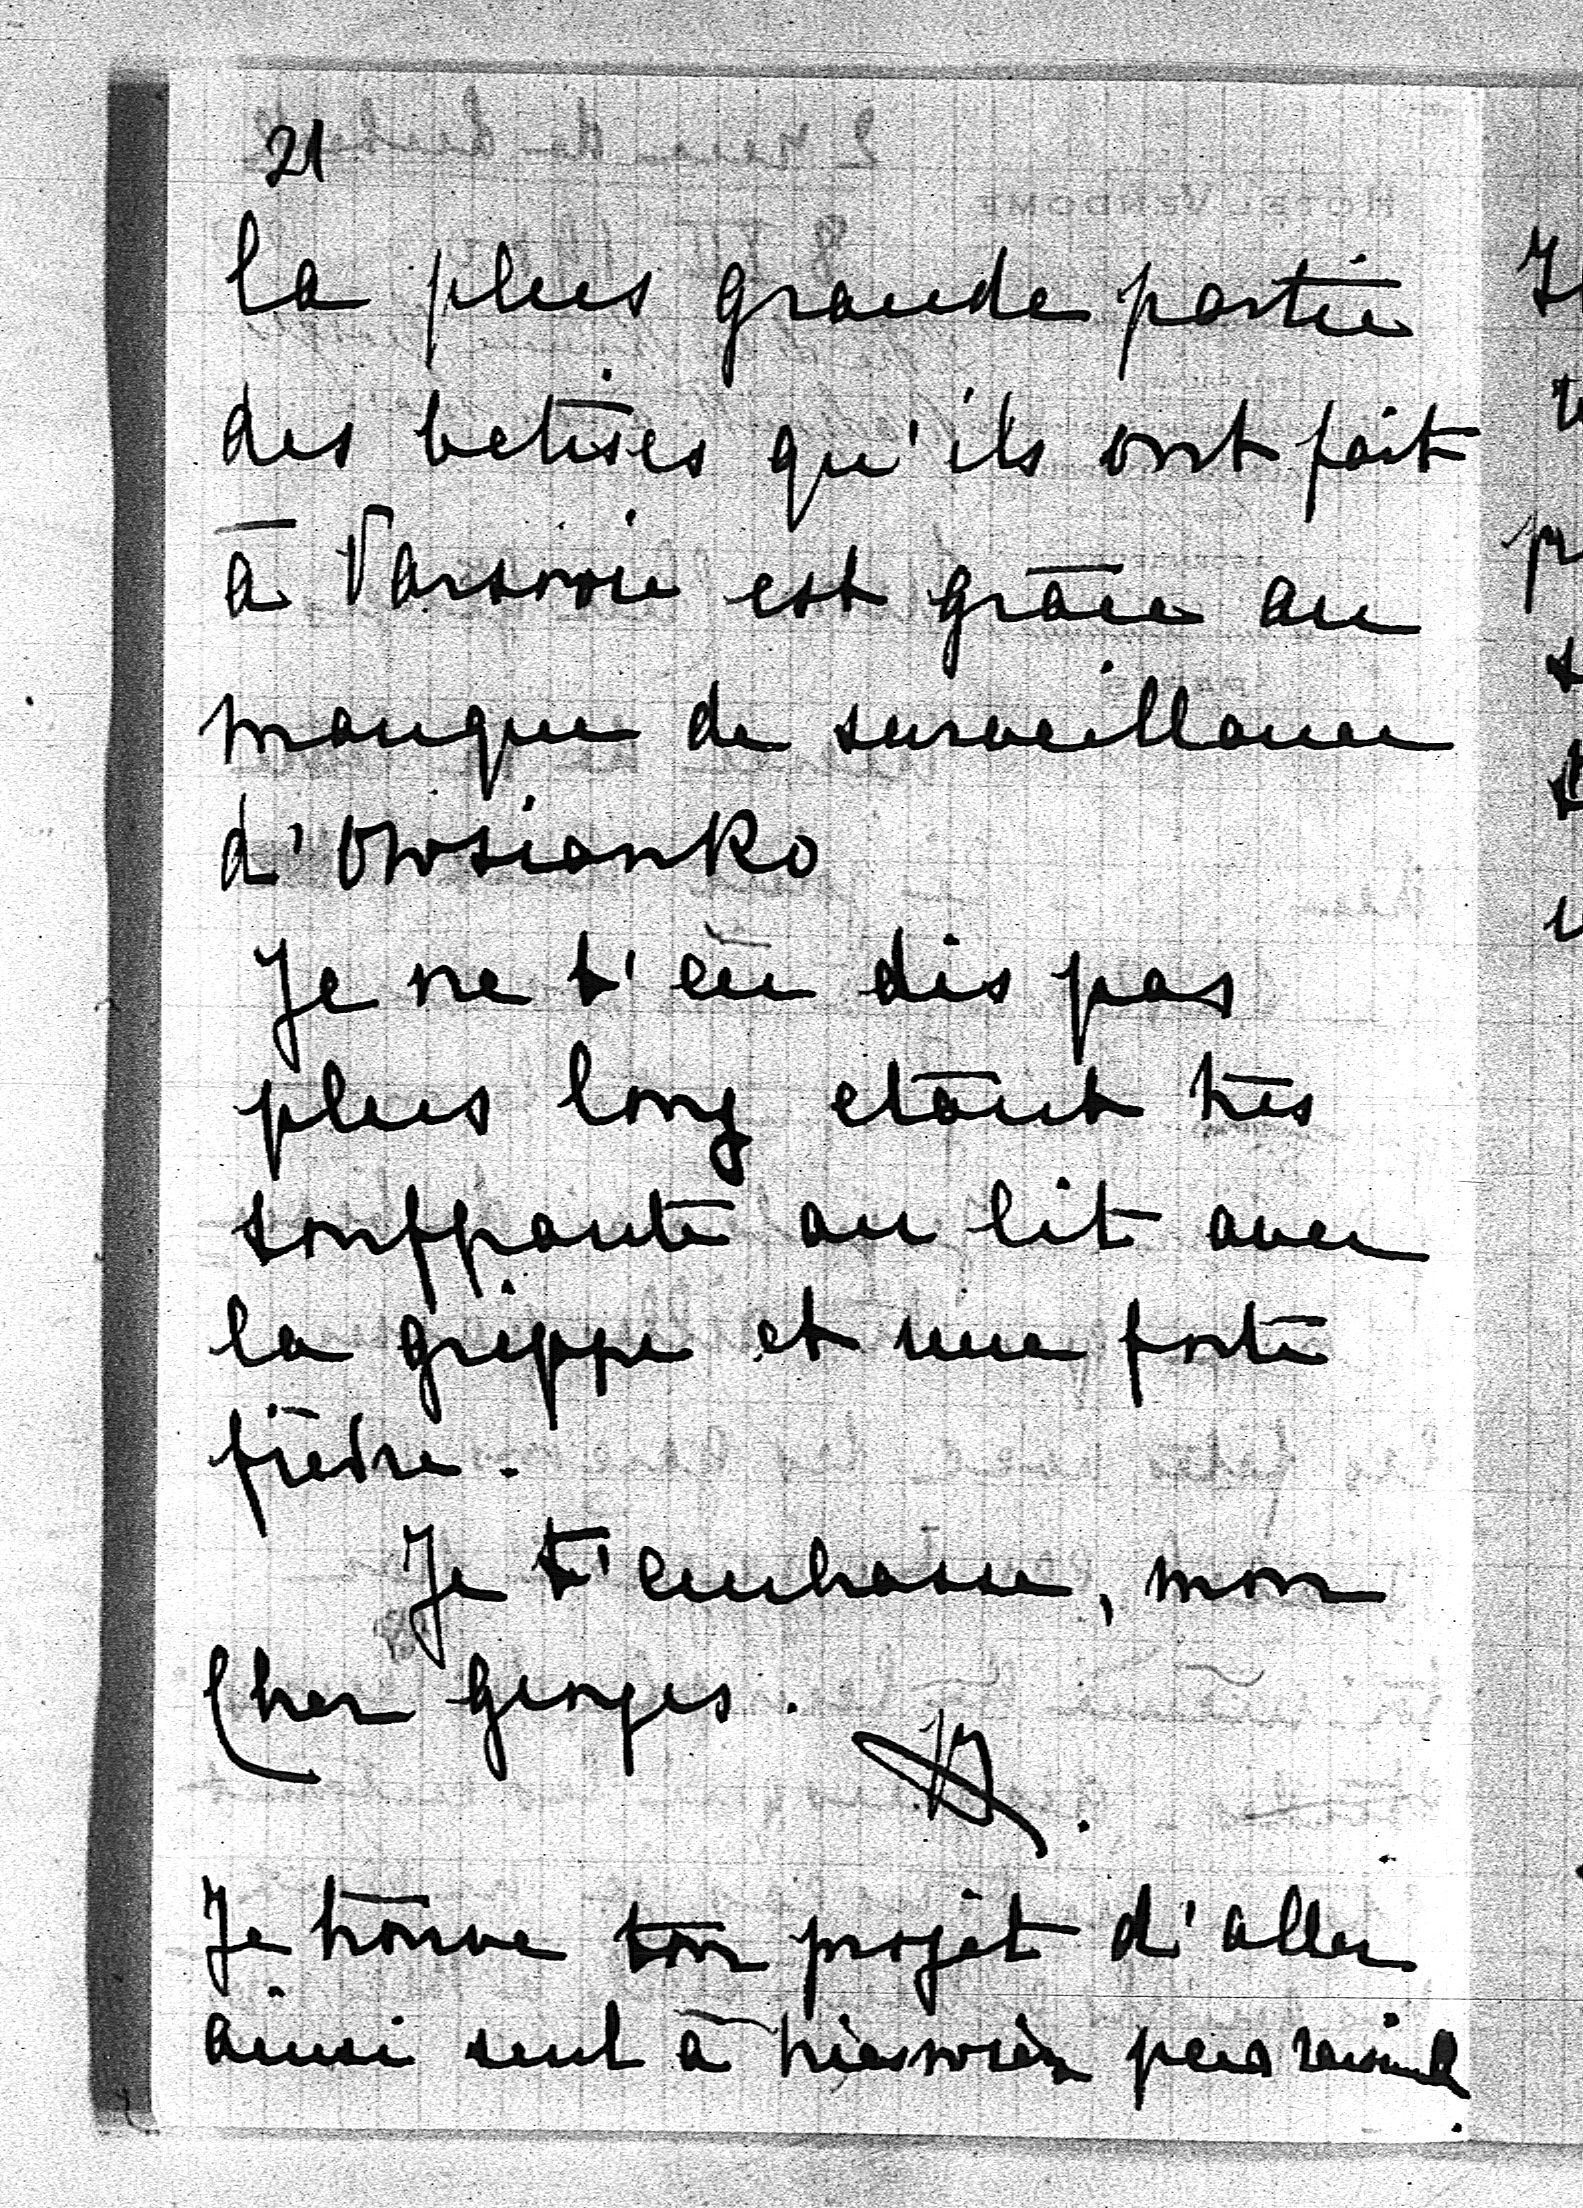 21
la plus grande partie
des betises qu'ils ont fait
à Varsovie est grâce au
manque de surveillance
d'Owsianko
Je ne t'en dis pas
plus long etant très
souffrante au lit avec
la grippe et une forte
fièvre.
Je t'embrasse, mon
Cher Georges.
Je trouve ton projet d'aller
ainsi seul à peu